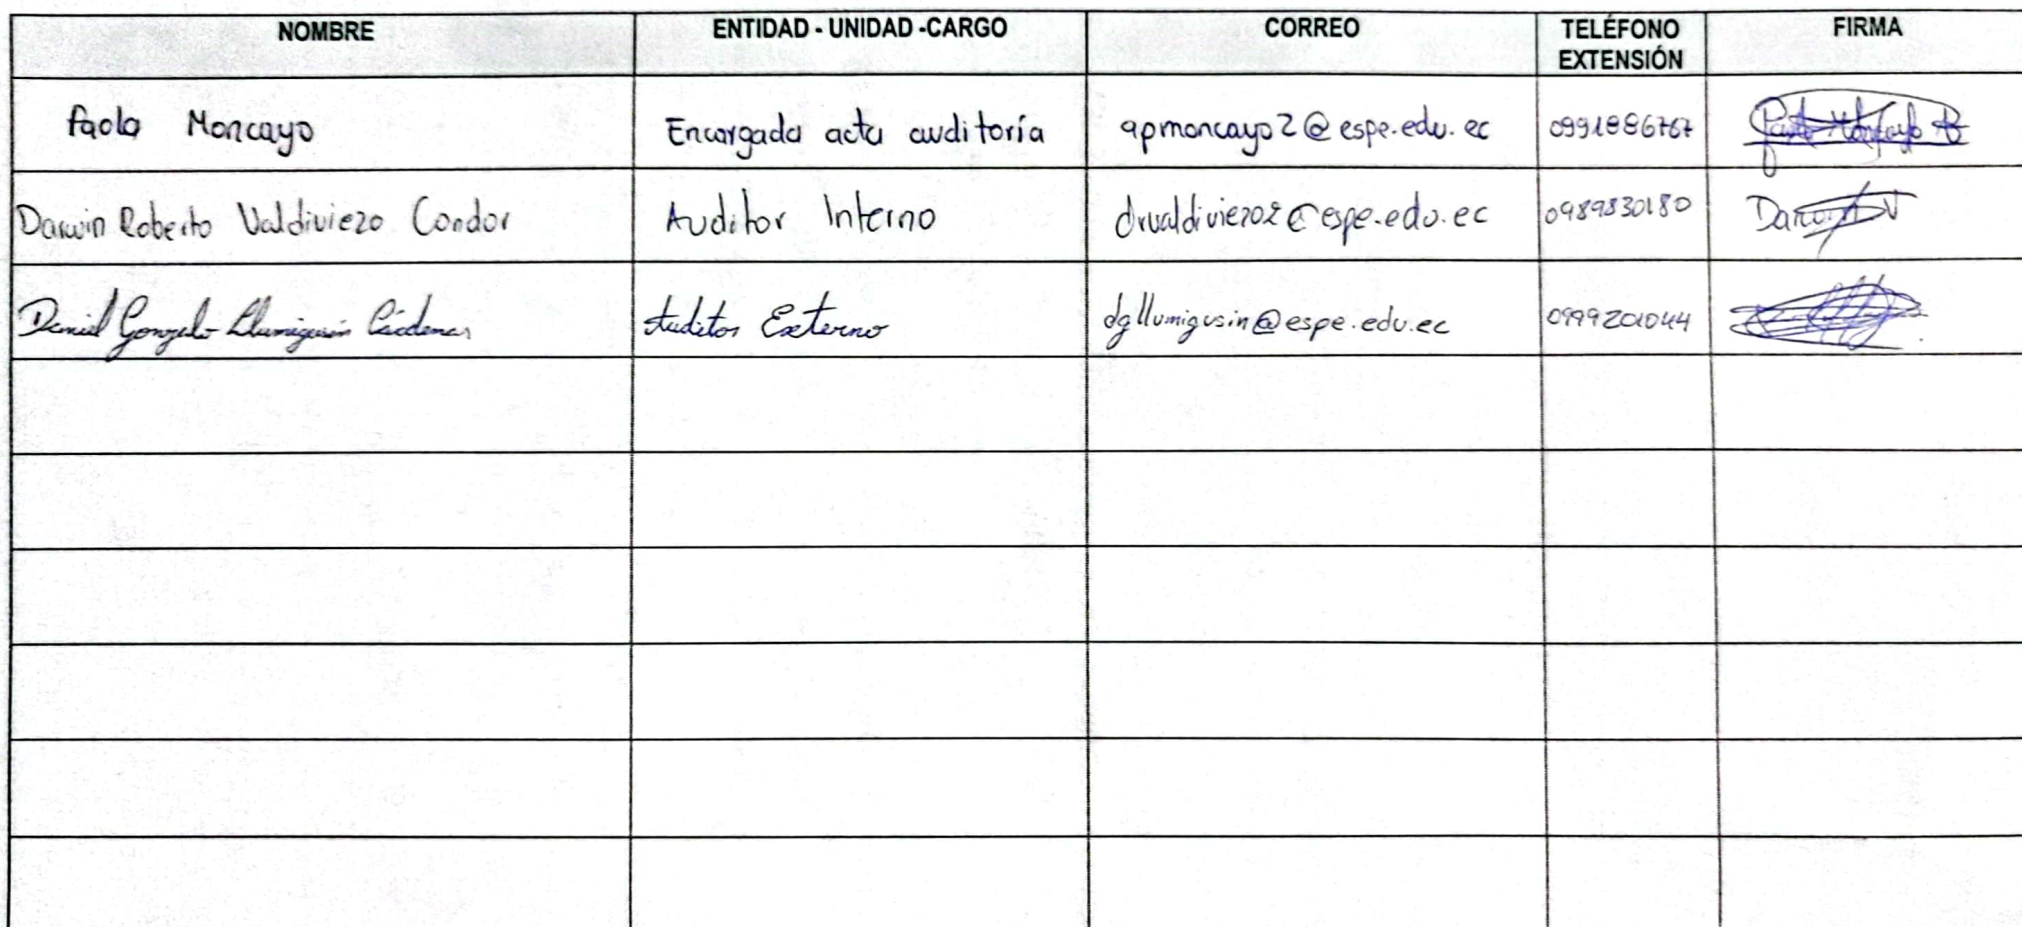 NOMBRE ENTIDAD - UNIDAD -CARGO CORREO TELÉFONO EXTENSIÓN FIRMA
Paola Moncayo Encargada acta auditoría apmoncayo2@espe.edu.ec 0991886767
Darwin Roberto Valdiviezo Condor Auditor Interno drvaldiviezo2@espe.edu.ec 0989830180 Darwin V
Daniel Gonzalo Llumiquisin Cárdenas Auditor Externo dgllumigusin@espe.edu.ec 0999201044